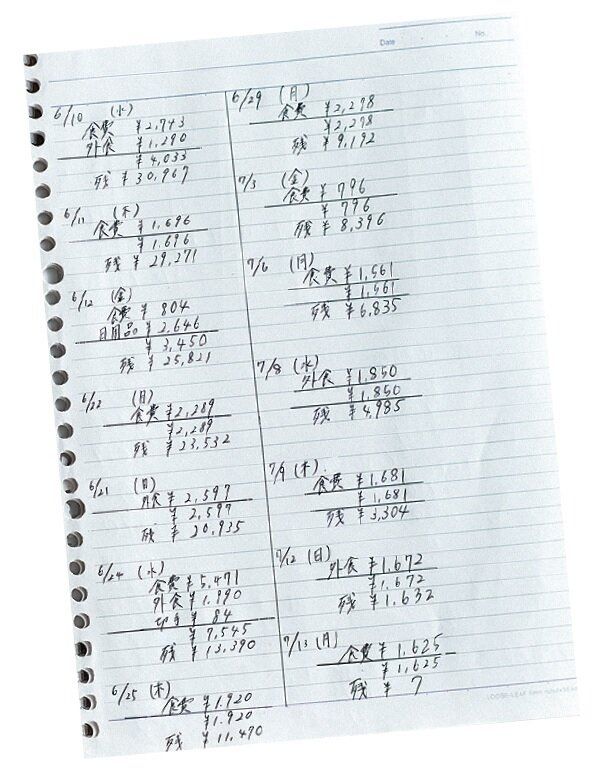 Date . . No.
6/10 (水)
食費 ¥2,743
外食 ¥1,290
¥4,033
残 ¥30,967
6/11 (木)
食費 ¥1,696
¥1,696
残 ¥29,271
6/12 (金)
食費 ¥804
日用品 ¥2,646
¥3,450
残 ¥25,821
6/22 (月)
食費 ¥2,289
¥2,289
残 ¥23,532
6/21 (日)
外食 ¥2,597
¥2,597
残 ¥20,935
6/24 (水)
食費 ¥5,471
外食 ¥1,990
切手 ¥84
¥7,545
残 ¥13,390
6/25 (木)
食費 ¥1,920
¥1,920
残 ¥11,470
6/29 (月)
食費 ¥2,278
¥2,278
残 ¥9,192
7/3 (金)
食費 ¥796
¥796
残 ¥8,396
7/6 (月)
食費 ¥1,561
¥1,561
残 ¥6,835
7/8 (水)
外食 ¥1,850
¥1,850
残 ¥4,985
7/9 (木)
食費 ¥1,681
¥1,681
残 ¥3,304
7/12 (日)
外食 ¥1,672
¥1,672
残 ¥1,632
7/13 (月)
食費 ¥1,625
¥1,625
残 ¥7
LOOSE-LEAF